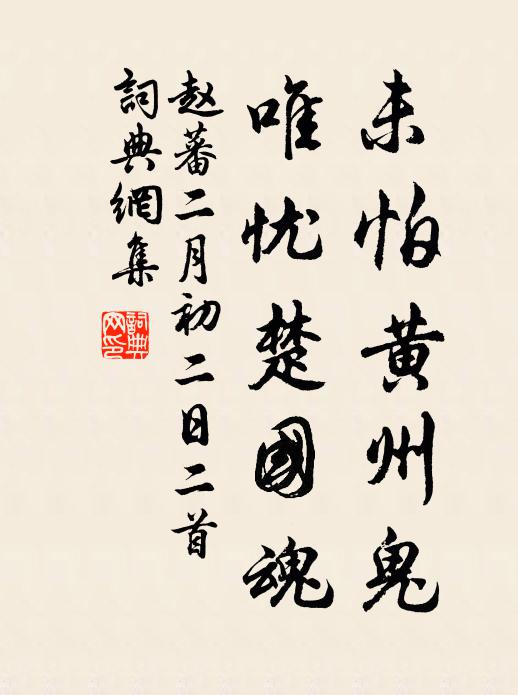 未怕黄州鬼
唯忧楚國魂
赵蕃二月初二日二首
詞典網集
詞典网印